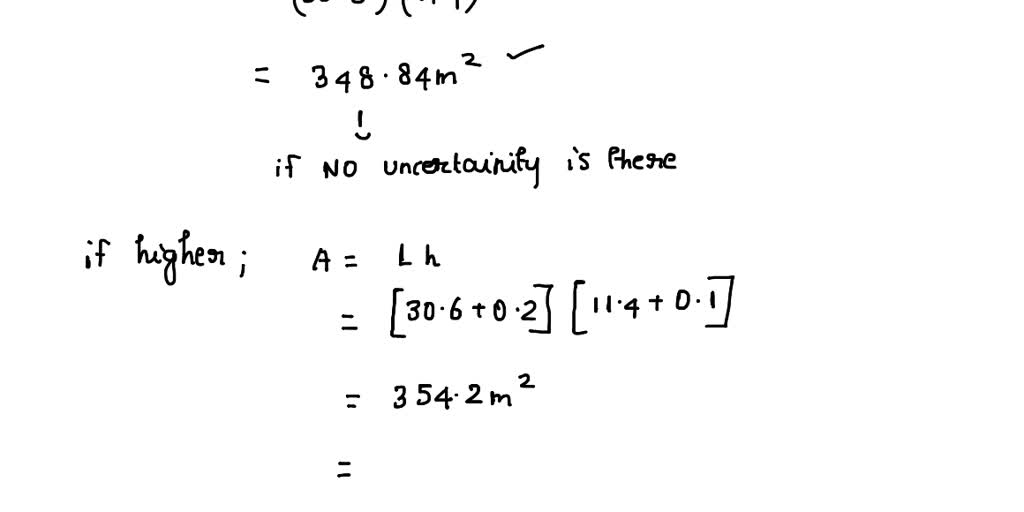 = 348.84m²
if NO uncertainity is there
if higher; A = Lh
= [30.6+0.2] [11.4+0.1]
= 354.2m²
=